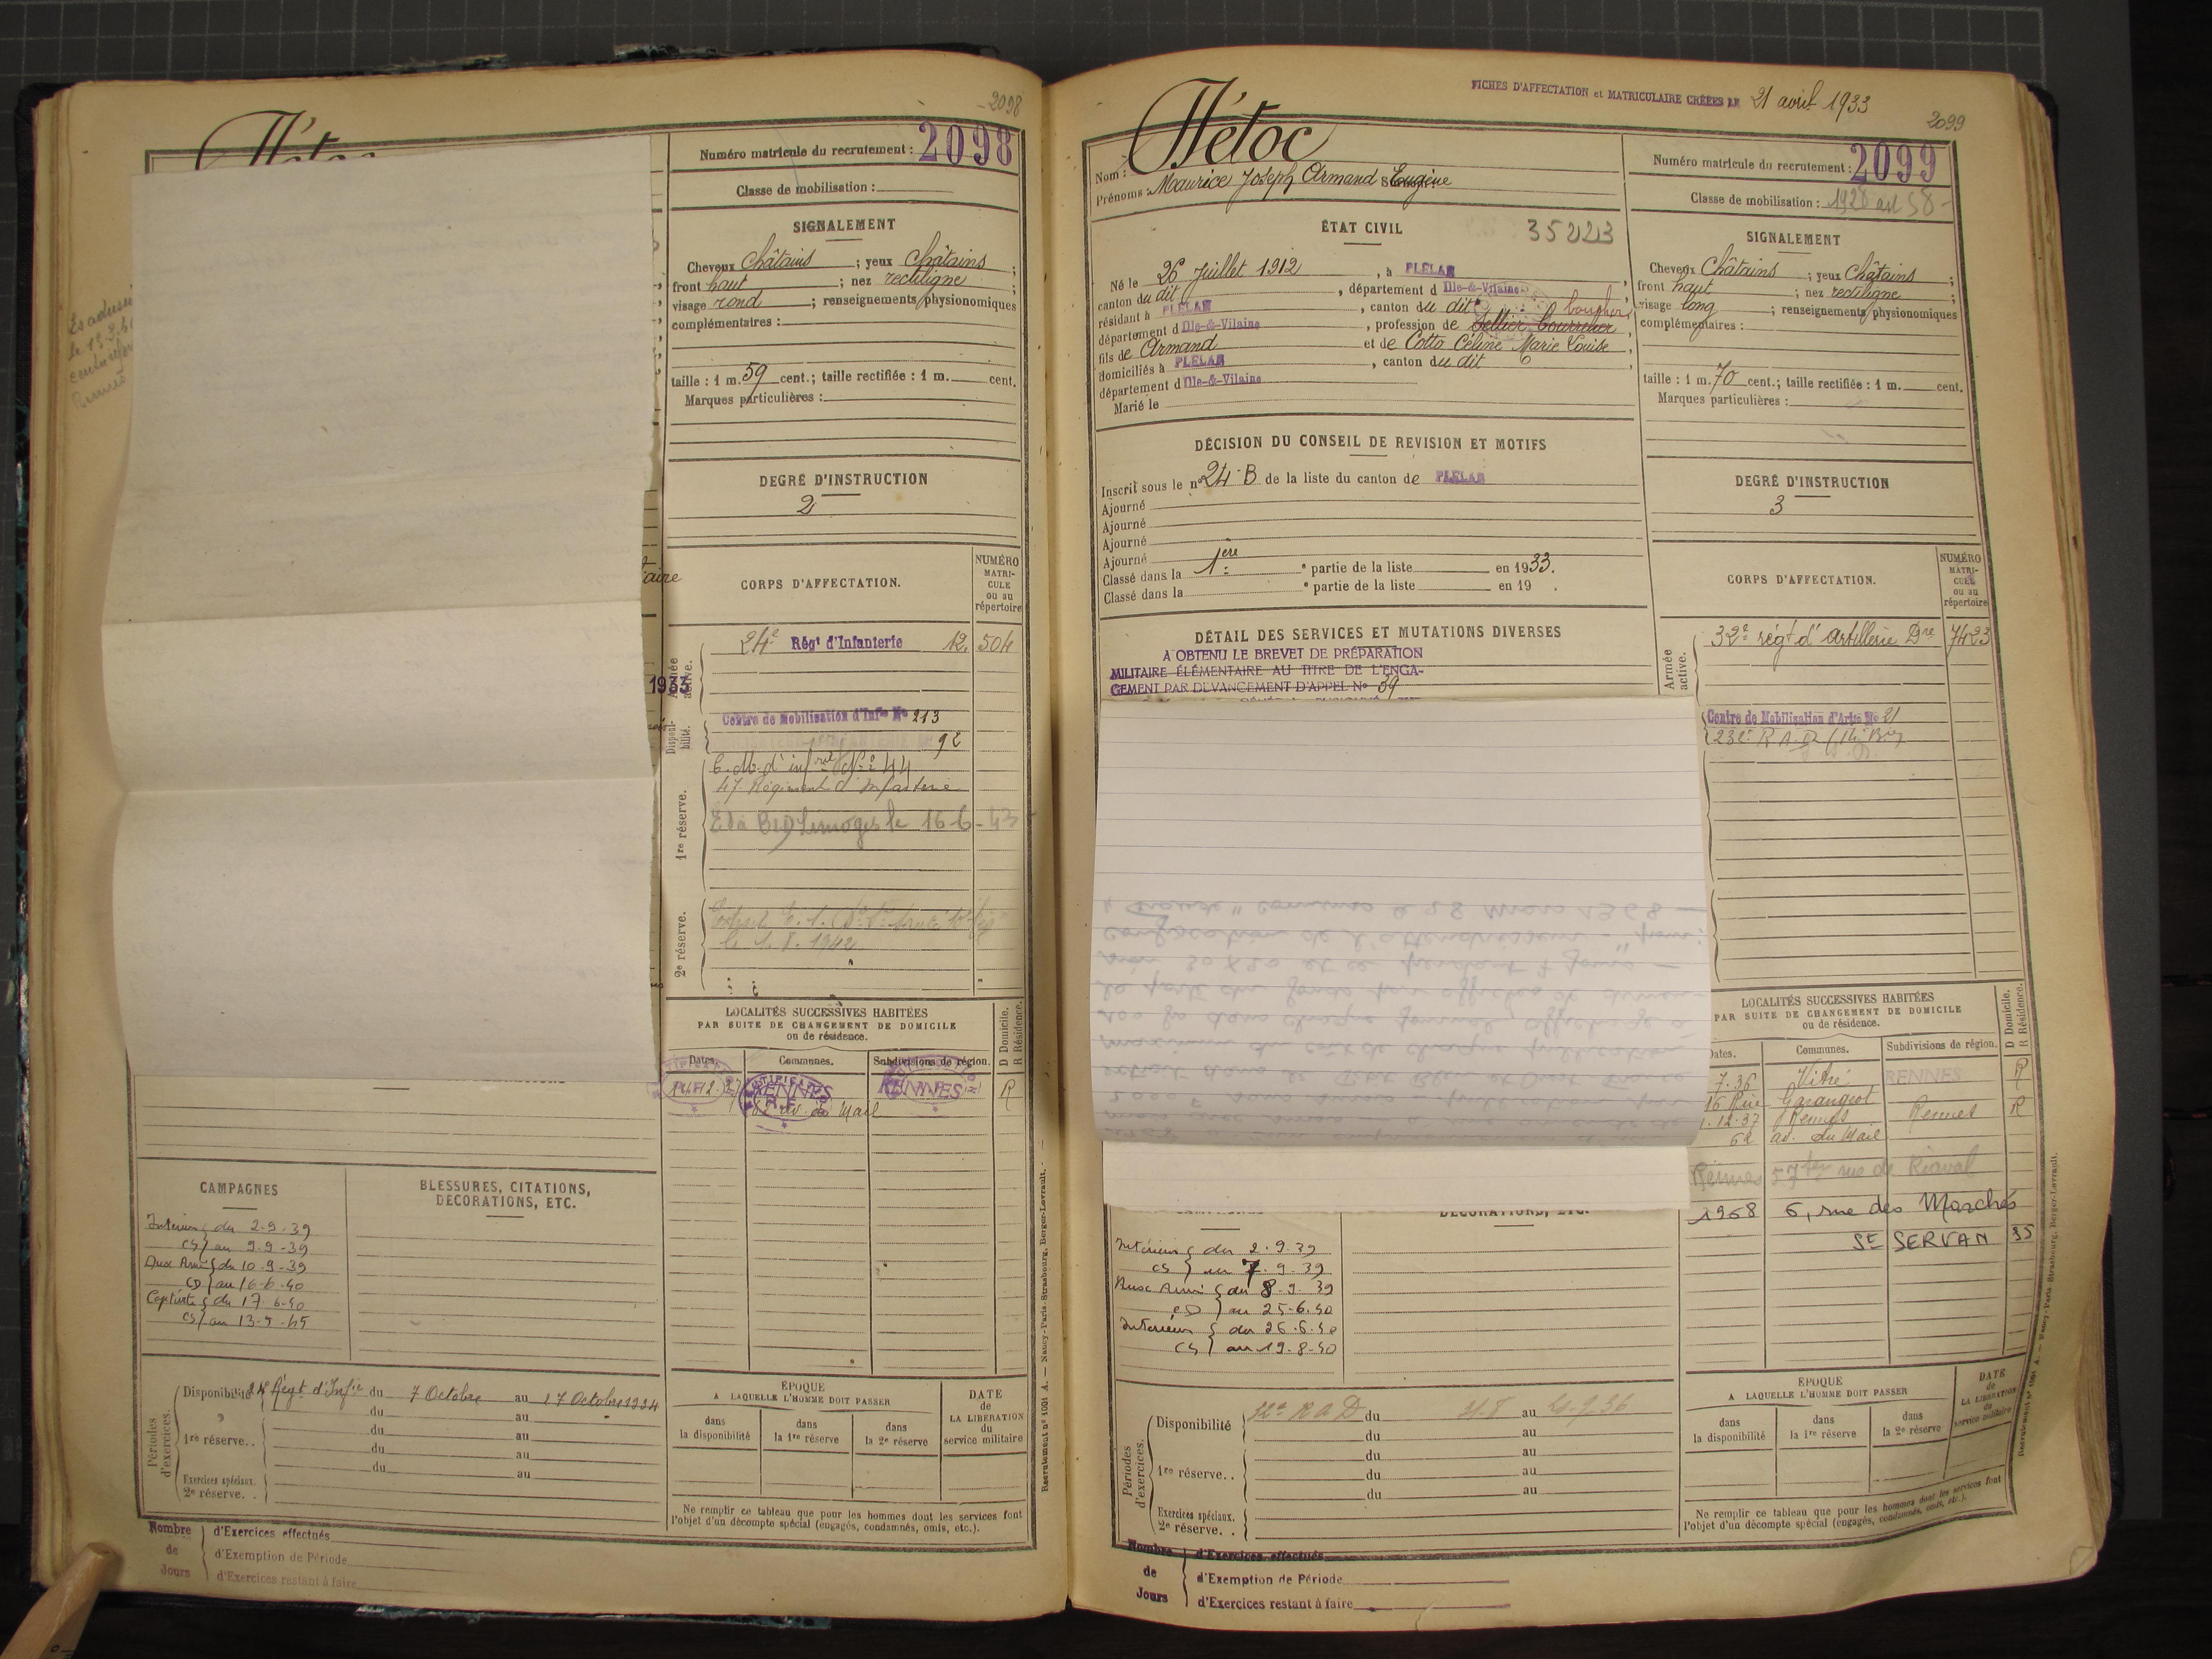 2098
Numéro matricule du recrutement : 2098
Classe de mobilisation :
SIGNALEMENT
Cheveux Châtains ; yeux Châtains ;
front haut ; nez rectiligne ;
visage rond ; renseignements physionomiques
complémentaires :
taille : 1 m. 59 cent.; taille rectifiée : 1 m. cent.
Marques particulières :
DEGRÉ D'INSTRUCTION
2
CORPS D'AFFECTATION.
NUMÉRO
MATRI-
CULE
ou au
répertoire
Armée active.
24e Régt d'Infanterie 12. 504
1933
Disponi-
bilité.
Centre de Mobilisation d'Infie No 213
92
1re réserve.
47 Régiment d'Infanterie
Limoges le 16-6-43
2e réserve.
le 1. 8. 1942
LOCALITÉS SUCCESSIVES HABITÉES
PAR SUITE DE CHANGEMENT DE DOMICILE
ou de résidence.
D Domicile.
R Résidence.
Dates. Communes. Subdivisions de région.
RENNES RENNES R
av. du Mail
CAMPAGNES
BLESSURES, CITATIONS,
DÉCORATIONS, ETC.
Intérieur du 2-9-39
CS au 9-9-39
Aux Armées du 10-9-39
CD au 16-6-40
Captivité du 17-6-40
CS au 13-5-45
Périodes d'exercices.
Disponibilité 24e Régt d'Infie du 7 Octobre au 17 Octobre 1934
du au
1re réserve.. du au
du au
du au
Exercices spéciaux.
2e réserve. .
ÉPOQUE
A LAQUELLE L'HOMME DOIT PASSER
dans
la disponibilité
dans
la 1re réserve
dans
la 2e réserve
DATE
de
LA LIBÉRATION
du
service militaire
Ne remplir ce tableau que pour les hommes dont les services font
l'objet d'un décompte spécial (engagés, condamnés, omis, etc.).
Recrutement no 1001 A. — Nancy-Paris-Strasbourg, Berger-Levrault.
Nombre
de
Jours
d'Exercices effectués
d'Exemption de Période
d'Exercices restant à faire
FICHES D'AFFECTATION et MATRICULAIRE CRÉÉES LE 21 avril 1933
2099
Nom : Hétoc
Prénoms : Maurice Joseph Armand Eugène
Numéro matricule du recrutement : 2099
Classe de mobilisation : 1928
ÉTAT CIVIL
35223
Né le 26 Juillet 1912, à PLÉLAN
canton du dit, département d Ille-&-Vilaine,
résidant à PLÉLAN, canton du dit,
département d Ille-&-Vilaine, profession de Sellier Bourrelier,
fils de Armand et de Cotto Céline Marie Louise,
domiciliés à PLÉLAN, canton du dit
département d Ille-&-Vilaine
Marié le
SIGNALEMENT
Cheveux Châtains ; yeux Châtains ;
front haut ; nez rectiligne ;
visage long ; renseignements physionomiques
complémentaires :
taille : 1 m. 70 cent.; taille rectifiée : 1 m. cent.
Marques particulières :
DÉCISION DU CONSEIL DE REVISION ET MOTIFS
Inscrit sous le no 24 B de la liste du canton de PLÉLAN
Ajourné
Ajourné
Ajourné
Ajourné
Classé dans la 1ère partie de la liste en 1933.
Classé dans la e partie de la liste en 19 .
DEGRÉ D'INSTRUCTION
3
DÉTAIL DES SERVICES ET MUTATIONS DIVERSES
A OBTENU LE BREVET DE PRÉPARATION
MILITAIRE ÉLÉMENTAIRE AU TITRE DE L'ENGA-
GEMENT PAR DEVANCEMENT D'APPEL No 59
CORPS D'AFFECTATION.
NUMÉRO
MATRI-
CULE
ou au
répertoire
Armée
active.
32e régt d'artillerie Dre 7423
Centre de Mobilisation d'Artie No 21
232e R A D
LOCALITÉS SUCCESSIVES HABITÉES
PAR SUITE DE CHANGEMENT DE DOMICILE
ou de résidence.
D Domicile.
R Résidence.
Dates. Communes. Subdivisions de région.
7.36 Vitré RENNES R
16 Rue Garangeot
12.37 Rennes Rennes R
62 av. du Mail
Rennes 57 ter rue de Riaval
1968 6, rue des Marchés
St SERVAN 35
Intérieur du 2.9.39
CS au 7.9.39
Aux Armées du 8.9.39
CD au 25.6.40
Intérieur du 26.6.40
CS au 19.8.40
Périodes
d'exercices.
Disponibilité 32e R A D du au
du au
du au
1re réserve.. du au
du au
Exercices spéciaux.
2e réserve. .
ÉPOQUE
A LAQUELLE L'HOMME DOIT PASSER
dans
la disponibilité
dans
la 1re réserve
dans
la 2e réserve
DATE
de
LA LIBÉRATION
du
service militaire
Ne remplir ce tableau que pour les hommes dont les services font
l'objet d'un décompte spécial (engagés, condamnés, omis, etc.).
Nombre
de
Jours
d'Exercices effectués
d'Exemption de Période
d'Exercices restant à faire